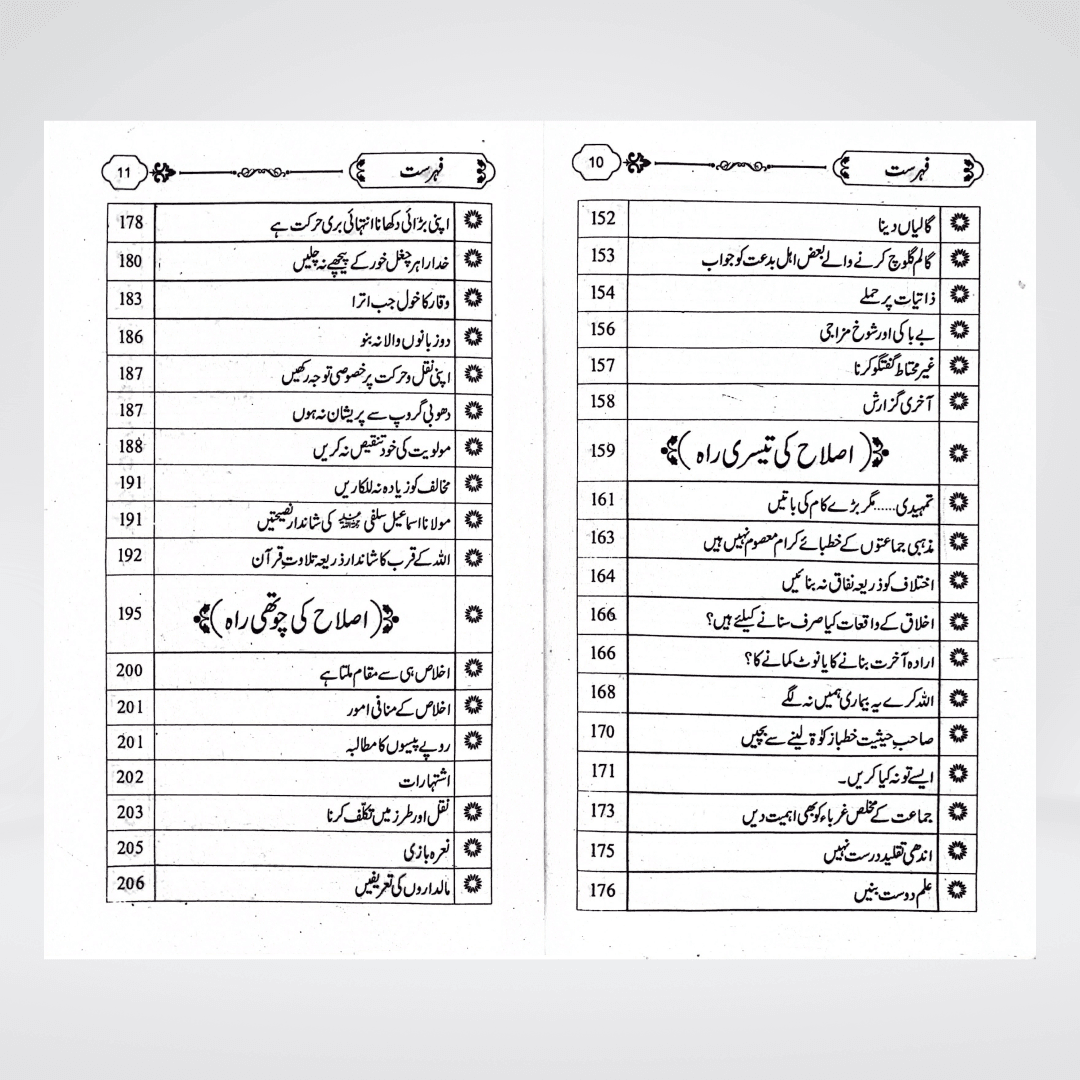 فہرست 10
گالیاں دینا 152
گالم گلوچ کرنے والے بعض اہل بدعت کو جواب 153
ذاتیات پر حملے 154
بے باکی اور شوخ مزاجی 156
غیر محتاط گفتگو کرنا 157
آخری گزارش 158
(اصلاح کی تیسری راہ) 159
تمہیدی……مگر بڑے کام کی باتیں 161
مذہبی جماعتوں کے خطبائے کرام معصوم نہیں ہیں 163
اختلاف کو ذریعہ نفاق نہ بنائیں 164
اخلاق کے واقعات کیا صرف سنانے کیلئے ہیں؟ 166
ارادہ آخرت بنانے کا یا نوٹ کمانے کا؟ 166
اللہ کرے یہ بیماری ہمیں نہ لگے 168
صاحبِ حیثیت خطبا زکوٰۃ لینے سے بچیں 170
ایسے تو نہ کیا کریں۔ 171
جماعت کے مخلص غرباء کو بھی اہمیت دیں 173
اندھی تقلید درست نہیں 175
علم دوست بنیں 176
فہرست 11
اپنی بڑائی دکھانا انتہائی بری حرکت ہے 178
خدارا ہر چغل خور کے پیچھے نہ چلیں 180
وقار کا خول جب اترا 183
دو زبانوں والا نہ بنو 186
اپنی نقل و حرکت پر خصوصی توجہ رکھیں 187
دھوبی گروپ سے پریشان نہ ہوں 187
مولویت کی خود تنقیص نہ کریں 188
مخالف کو زیادہ نہ للکاریں 191
مولانا اسماعیل سلفی کی شاندار نصیحتیں 191
اللہ کے قرب کا شاندار ذریعہ تلاوتِ قرآن 192
(اصلاح کی چوتھی راہ) 195
اخلاص ہی سے مقام ملتا ہے 200
اخلاص کے منافی امور 201
روپے پیسوں کا مطالبہ 201
اشتہارات 202
نقل اور طرز میں تکلّف کرنا 203
نعرہ بازی 205
مالداروں کی تعریفیں 206